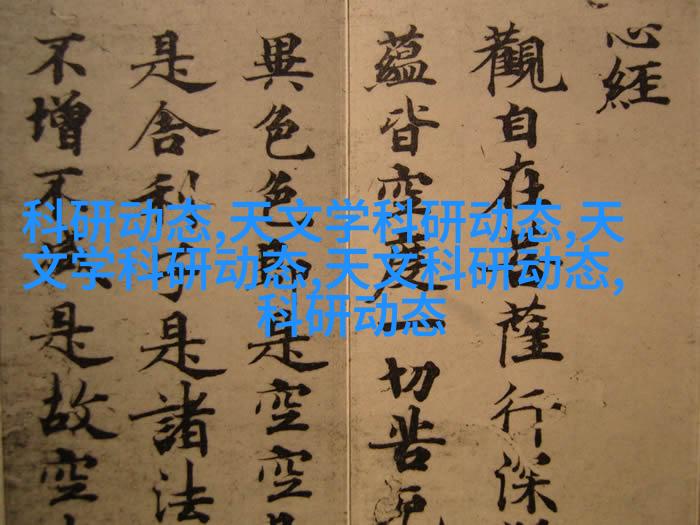 心經
觀自在菩薩行深
蘊皆空度一切苦
異色色即是空空
是舍利子是諸法
不增不減是故空
科研动态,天文学科研动态,天
文学科研动态,天文科研动态,
科研动态